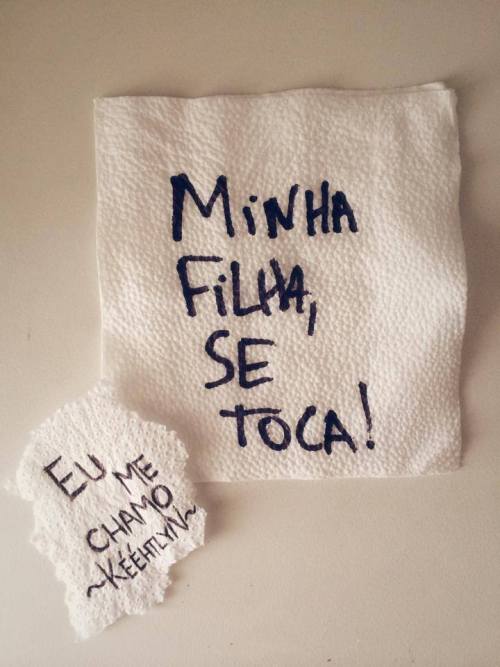 MiNHA
FiLHA,
SE
TOCA!
EU ME
CHAMO
~KÉÉHTLYN~